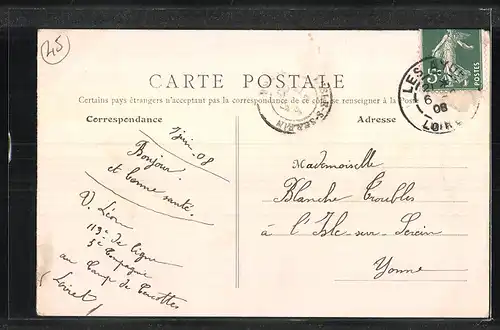 45
CARTE POSTALE
Certains pays étrangers n'acceptant pas la correspondance de ce côté, se renseigner à la Poste
Correspondance
Adresse
7 juin 08
Bonjour
et bonne santé.
V. Léon
113e de ligne
5e Compagne
au Camp de Cercottes
(Loiret)
Mademoiselle
Blanche Troubles
à l'Isle-sur-Serein
Yonne
5c
POSTES
LES
6
08
LOIRET
ISLE-S-SEREIN